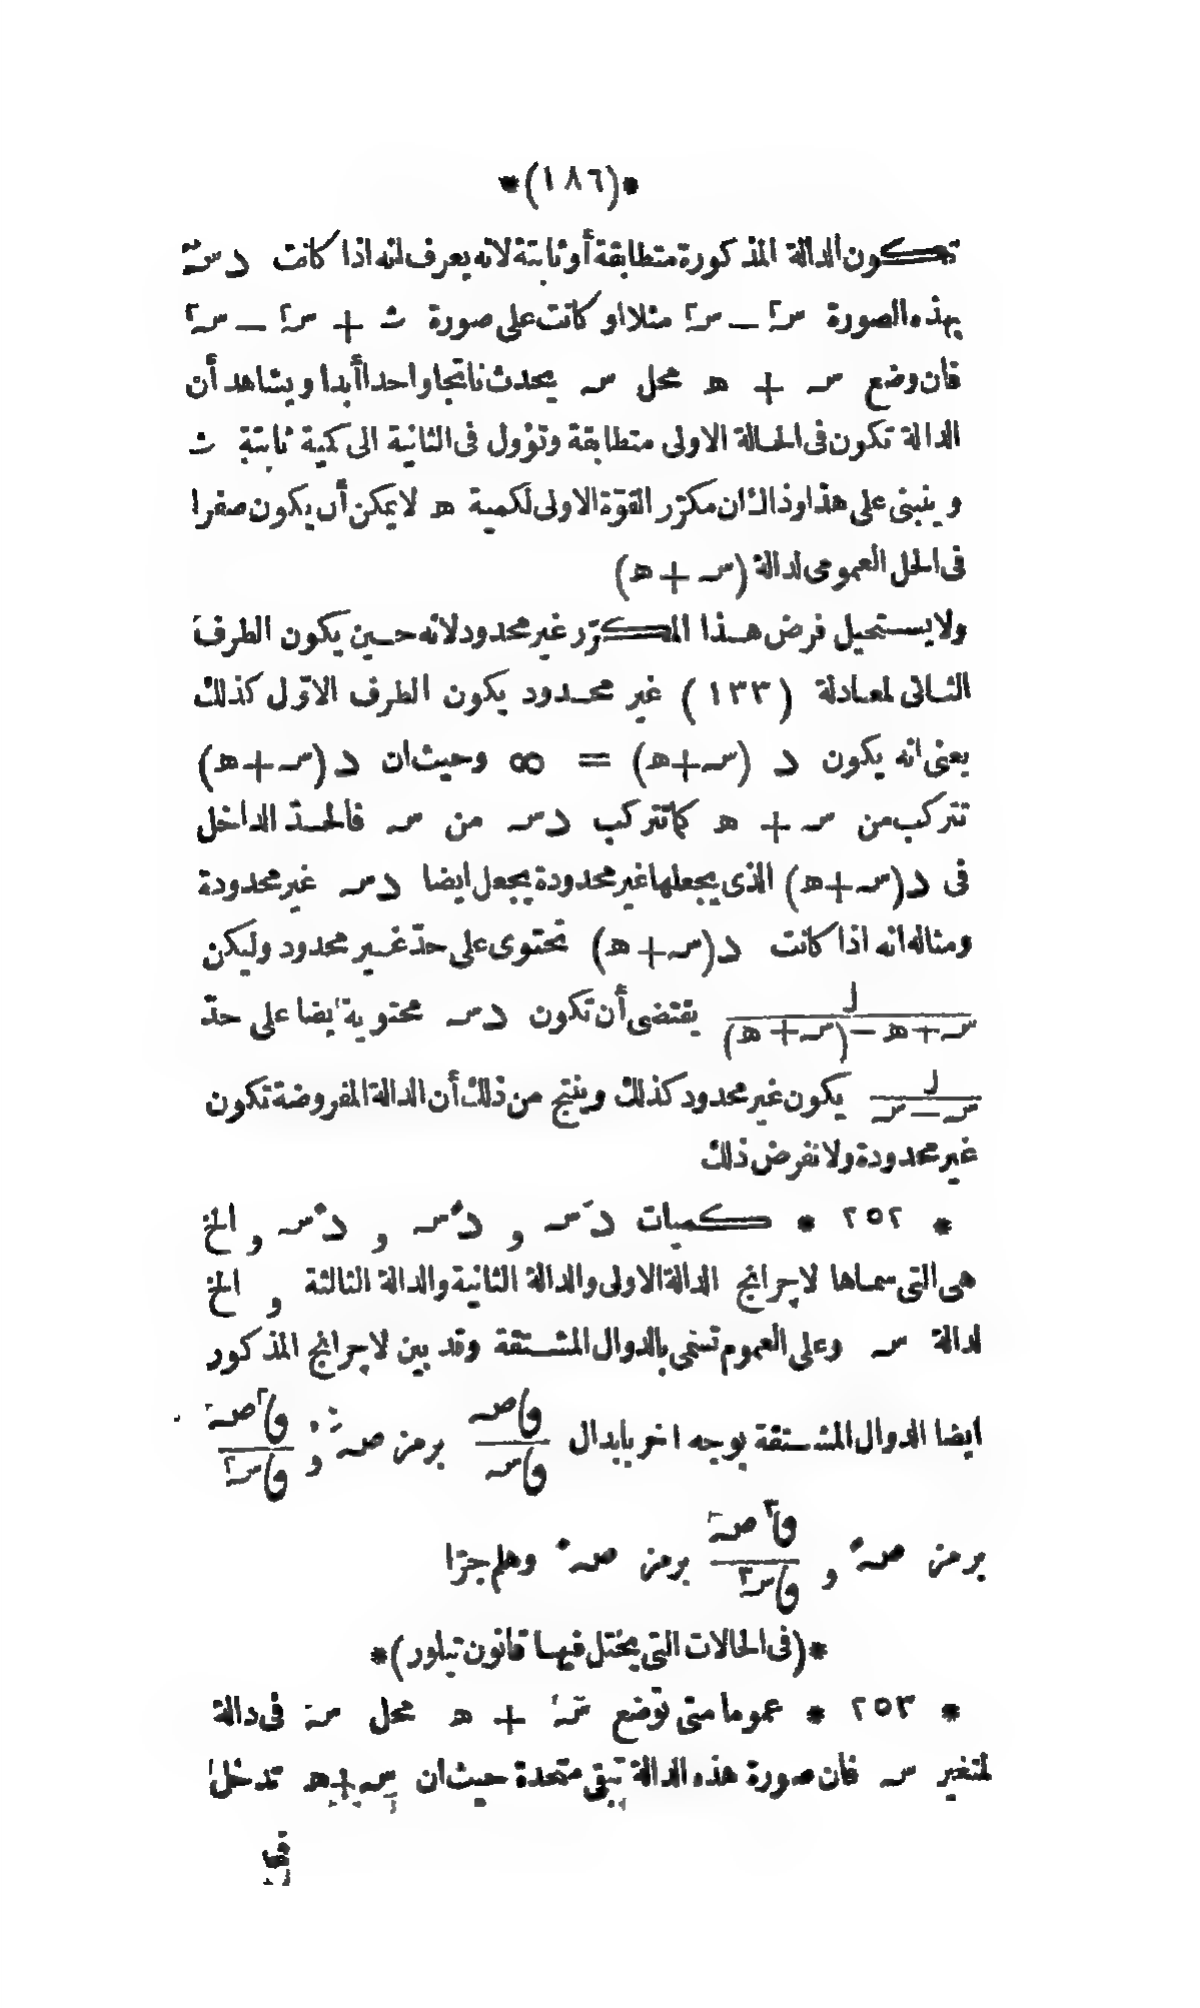 *(١٨٦)*
تكون الدالة المذكورة متطابقة أو ثابتة لانه يعرف انه اذا كانت د سہ
بهذه الصورة سہ٢ – سہ٢ مثلا او كانت على صورة ث + سہ٢ – سہ٢
فان وضع سہ + ھ محل سہ يحدث ناتجا واحدا أبدا ويشاهد أن
الدالة تكون فى الحالة الاولى متطابقة وتؤول فى الثانية الى كمية ثابتة ث
وينبنى على هذا وذاك ان مكرّر القوّة الاولى لكمية ھ لا يمكن أن يكون صفرا
فى الحل العمومى لدالة (سہ + ھ)
ولا يستحيل فرض هذا المكرّر غير محدود لانه حين يكون الطرف
الثانى لمعادلة (١٣٣) غير محدود يكون الطرف الاوّل كذلك
يعنى انه يكون د (سہ + ھ) = ∞ وحيث ان د (سہ + ھ)
تتركب من سہ + ھ كما تتركب د سہ من سہ فالحدّ الداخل
فى د (سہ + ھ) الذى يجعلها غير محدودة يجعل ايضا د سہ غير محدودة
ومثاله انه اذا كانت د (سہ + ھ) تحتوى على حدّ غير محدود وليكن
ل / سہ + ھ – (سہ + ھ) يقتضى أن تكون د سہ محتوية ايضا على حدّ
ل / سہ – سہ يكون غير محدود كذلك وينتج من ذلك أن الدالة المفروضة تكون
غير محدودة ولا نفرض ذلك
* ٢٥٢ * كميات دَ سہ و دً سہ و دۛ سہ و الخ
هى التى سماها لاجرانج الدالة الاولى والدالة الثانية والدالة الثالثة و الخ
لدالة سہ وعلى العموم تسمى بالدوال المشتقة وقد بين لاجرانج المذكور
ايضا الدوال المشتقة بوجه اخر بابدال ڡاصہ / ڡاسہ برمز صہَ و ڡا٢صہ / ڡاسہ٢
برمز صہً و ڡا٣صہ / ڡاسہ٣ برمز صہۛ وهلم جرّا
*(فى الحالات التى يختل فيها قانون تيلور)*
* ٢٥٣ * عموما متى توضع سہ + ھ محل سہ فى دالة
لمتغير سہ فان صورة هذه الدالة تبقى متحدة حيث ان سہ + ھ تدخل
فى